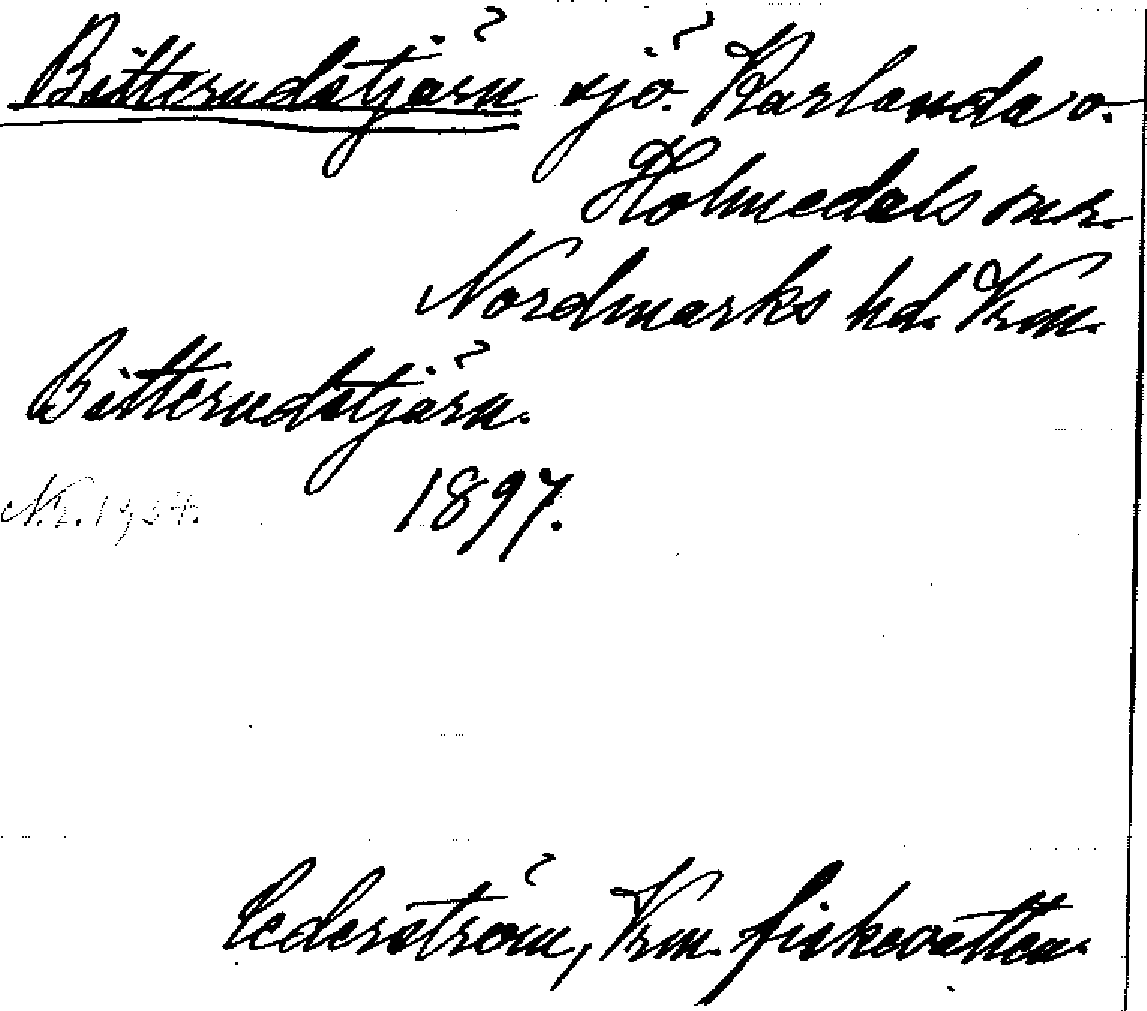 Bitterudstjärn sjö. Karlanda o.
Holmedals snr.
Nordmarks hd. Vrm.
Bitterudstjärn.
1897.
N.E. 1934.
Cederström, Vrm. fiskevatten.